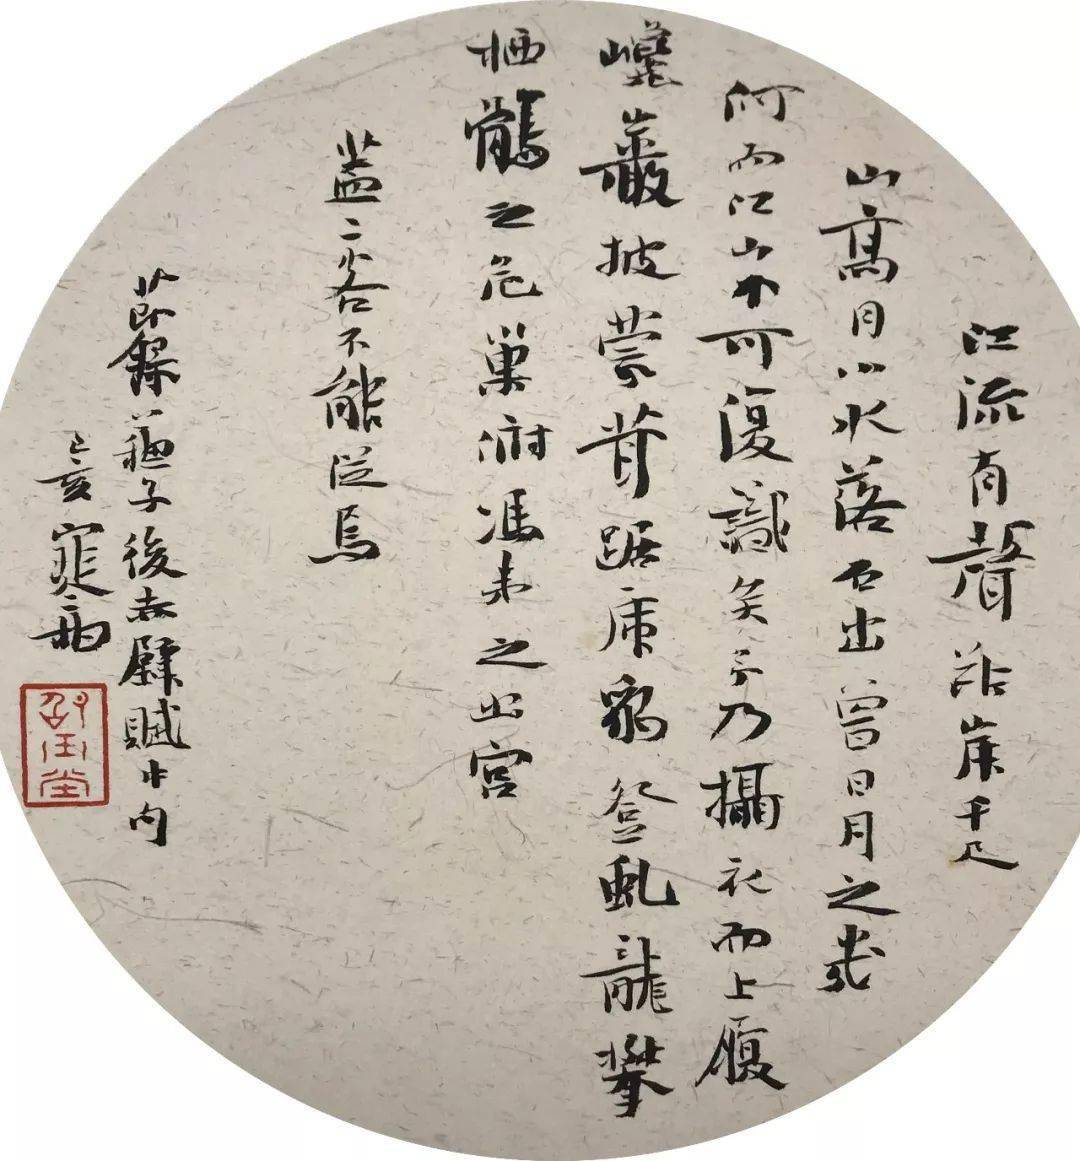 江流有聲斷岸千尺
山高月小水落石出曾日月之幾
何而江山不可復識矣予乃攝衣而上履
巉巖披蒙茸踞虎豹登虬龍攀
栖鶻之危巢俯馮夷之幽宮
蓋二客不能從焉
節錄蘇子後赤壁賦中句
己亥